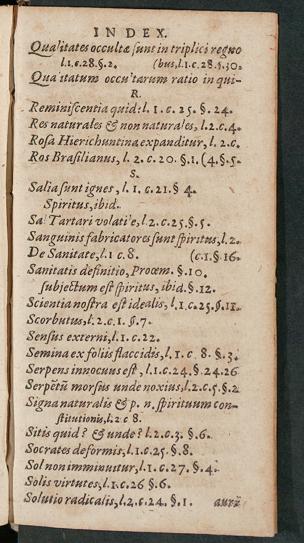 INDEX.
Qualitates occultæ sunt in triplici regno
l.1.c.28.§.2. (bus, l.1.c.28.§.30.
Qualitatum occultarum ratio in qui-
R.
Reminiscentia quid: l.1.c.25.§.24.
Res naturales & non naturales, l.2.c.4.
Rosa Hierichuntina expanditur, l.2.c.
Ros Brasilianus, l.2.c.20.§.1. (4.§.5.
S.
Salia sunt ignes, l.1.c.21.§ 4.
Spiritus, ibid.
Sal Tartari volatile, l.2.c.25.§.5.
Sanguinis fabricatores sunt spiritus, l.2.
De Sanitate, l.1 c.8. (c.1.§.16.
Sanitatis definitio, Proœm. §.10.
subjectum est spiritus, ibid.§.12.
Scientia nostra est idealis, l.1.c.25.§.11.
Scorbutus, l.2.c.1.§.7.
Sensus externi, l.1.c.22.
Semina ex foliis flaccidis, l.1.c 8.§.3.
Serpens innocuus est, l.1.c.24.§.24.26
Serpētū morsus unde noxius, l.2.c.5.§.2
Signa naturalis & p. n. spirituum con-
stitutionis, l.2 c 8.
Sitis quid? & unde? l.2.c.3.§.6.
Socrates deformis, l.1.c.25.§.8.
Sol non imminuitur, l.1.c.27.§.4.
Solis virtutes, l.1.c.26 §.6.
Solutio radicalis, l.2.c.24.§.1. auræ